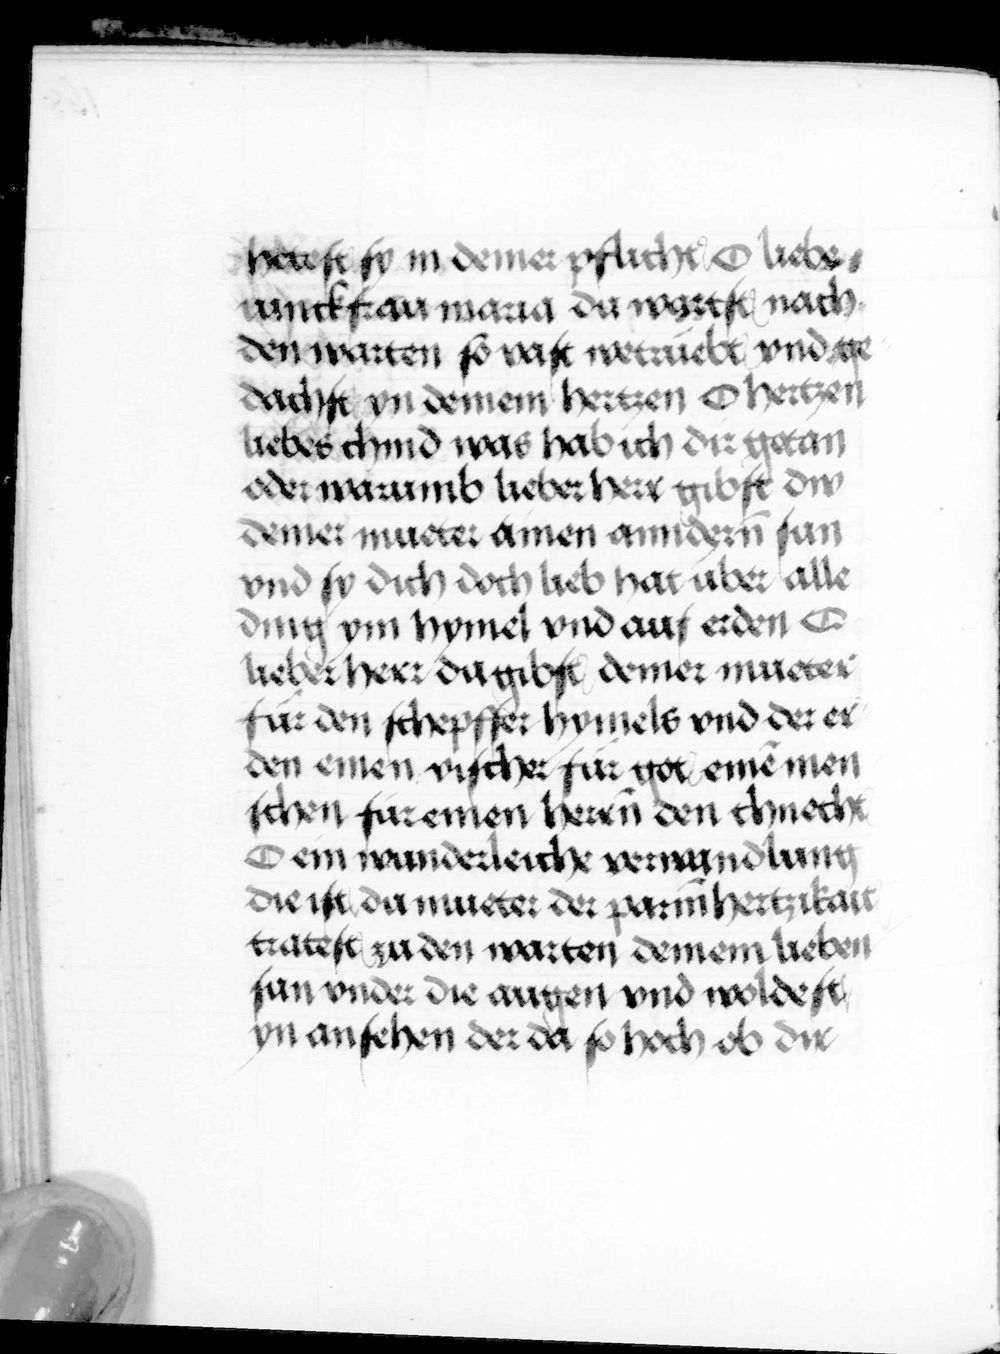 hetest sy in deiner pflicht O liebe
iunckfrau maria du wurtst nach
den warten so vast wetruebt vnd ge
dachst yn deinem hertzen O hertzen
liebes chind was hab ich dir getan
oder warumb lieber herr gibst dw
deiner mueter ainen anndern̄ sun
vnd sy dich doch lieb hat über alle
ding ym hymel vnd auf erden O
lieber herr du gibst deiner mueter
für den schepffer hymels vnd der er
den einen vischer für got einē men
schen für einen herrn̄ den chnecht
O ein wunderleiche verwandlung
die ist du mueter der parm̄hertzikait
tratest zu den warten deinem lieben
sun vnder die augen vnd woldest
yn an sehen der da so hoch ob dir